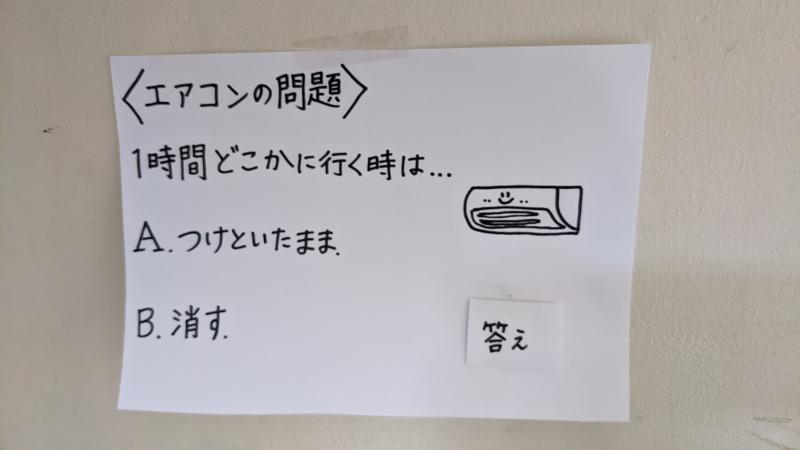 〈エアコンの問題〉
1時間どこかに行く時は...
A.つけといたまま.
B.消す.
答え